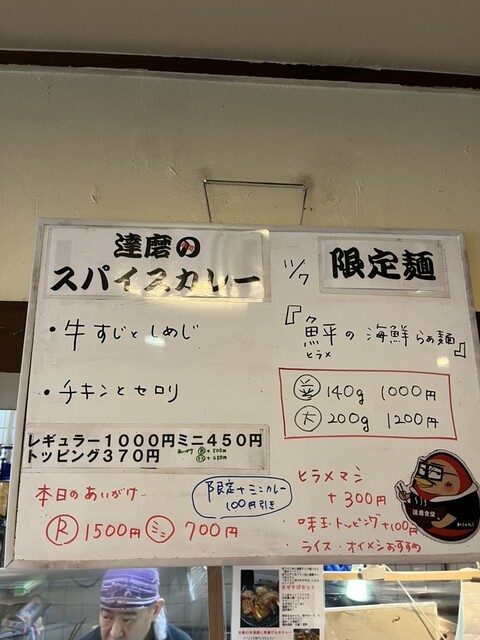 達磨の
スパイスカレー
・牛すじとしめじ
・チキンとセロリ
レギュラー1000円ミニ450円
トッピング370円
本日のあいがけ
R 1500円 ミニ 700円
限定+ミニカレー
100円引き
11/7
限定麺
『鮃の海鮮らぁ麺』
ヒラメ
並 140g 1000円
大 200g 1200円
ヒラメマシ
+300円
味玉トッピング+100円
ライス・オイメシおすすめ
達磨食堂